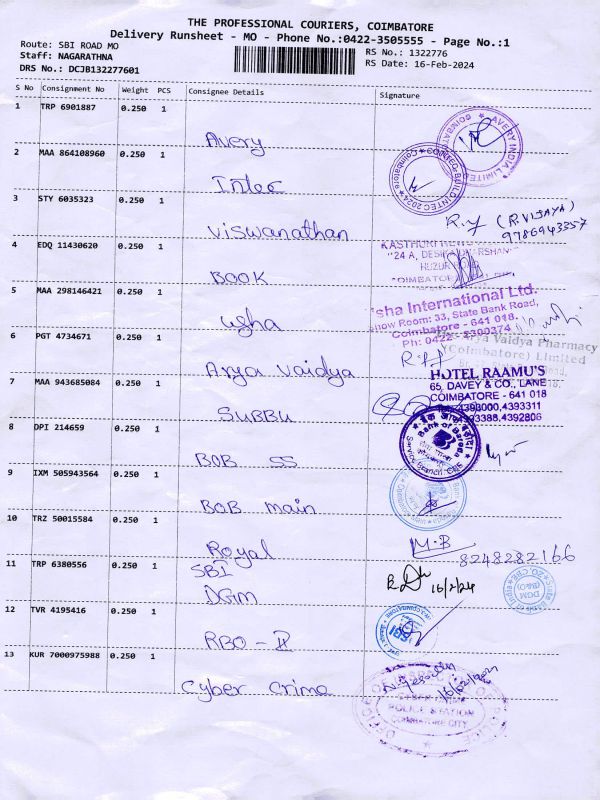 THE PROFESSIONAL COURIERS, COIMBATORE
Delivery Runsheet - MO - Phone No.:0422-3505555 - Page No.:1
Route: SBI ROAD MO
RS No.: 1322776
Staff: NAGARATHNA
RS Date: 16-Feb-2024
DRS No.: DCJB132277601
S No Consignment No Weight PCS Consignee Details Signature
1 TRP 6901887 0.250 1
Avery
AVERY INDIA LIMITED
2 MAA 864108960 0.250 1
Intec
Coimbatore
3 STY 6035323 0.250 1
Viswanathan
R.Y (R.VIJAYA)
9786943357
4 EDQ 11430620 0.250 1
BOOK
KASTHURI
"24 A,
HUZUR
COIMBATORE
5 MAA 298146421 0.250 1
Usha
sha International Ltd.
how Room: 33, State Bank Road,
Coimbatore - 641 018.
Ph: 0422 - 2300374
6 PGT 4734671 0.250 1
Arya Vaidya
Arya Vaidya Pharmacy
(Coimbatore) Limited
7 MAA 943685084 0.250 1
SUBBU
HOTEL RAAMU'S
65, DAVEY & CO., LANE
COIMBATORE - 641 018
4393000,4393311
93388,4392806
8 DPI 214659 0.250 1
BOB SS
Bank of Baroda
Service Branch, CBE
9 IXM 505943564 0.250 1
BOB main
10 TRZ 50015584 0.250 1
Royal
M.B
8248282166
11 TRP 6380556 0.250 1
SBI
DGM
16/2/24
DGM
(B&O)
12 TVR 4195416 0.250 1
RBO - II
SBI
13 KUR 7000975988 0.250 1
Cyber Crime
16/02/2024
POLICE STATION
COIMBATORE CITY